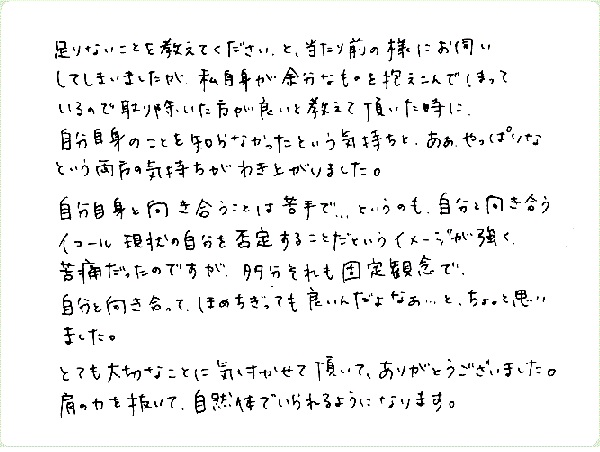 足りないことを教えてください、と、当たり前の様にお伺い
してしまいましたが、私自身が余分なものを抱えこんでしまって
いるので取り除いた方が良いと教えて頂いた時に、
自分自身のことを知らなかったという気持ちと、あぁ、やっぱりな
という両方の気持ちがわき上がりました。
自分自身と向き合うことは苦手で…というのも、自分と向き合う
イコール 現状の自分を否定することだというイメージが強く、
苦痛だったのですが、多分それも固定観念で、
自分と向き合って、ほめちぎっても良いんだよなぁ…と、ちょっと思い
ました。
とても大切なことに気付かせて頂いて、ありがとうございました。
肩の力を抜いて、自然体でいられるようになります。